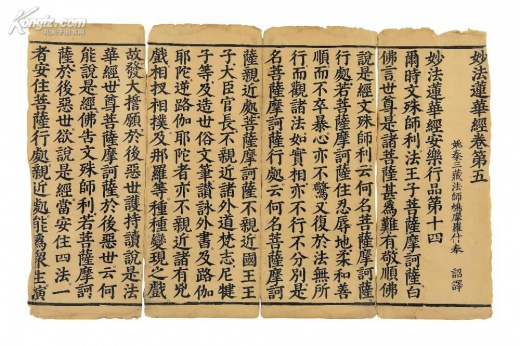 妙法蓮華經卷第五
姚秦三藏法師鳩摩羅什奉 詔譯
妙法蓮華經安樂行品第十四
爾時文殊師利法王子菩薩摩訶薩白
佛言世尊是諸菩薩甚為難有敬順佛
說是經文殊師利云何名菩薩摩訶薩
行處若菩薩摩訶薩住忍辱地柔和善
順而不卒暴心亦不驚又復於法無所
行而觀諸法如實相亦不行不分別是
名菩薩摩訶薩行處云何名菩薩摩訶
薩親近處菩薩摩訶薩不親近國王王
子大臣官長不親近諸外道梵志尼犍
子等及造世俗文筆讚詠外書及路伽
耶陀逆路伽耶陀者亦不親近諸有兇
戲相扠相撲及那羅等種種變現之戲
故發大誓願於後惡世護持讀說是法
華經世尊菩薩摩訶薩於後惡世云何
能說是經佛告文殊師利若菩薩摩訶
薩於後惡世欲說是經當安住四法一
者安住菩薩行處親近處能為眾生演
Kongfz.com